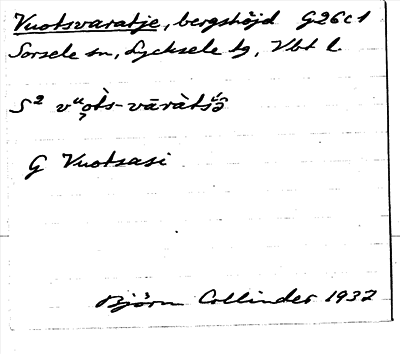 Vuotsvaratje, bergshöjd G26c1
Sorsele sn, Lycksele tg, Vbt l.
S² vu̯o̧ts-vāràts̀ə̂
G Vuotsasi
Björn Collinder 1937